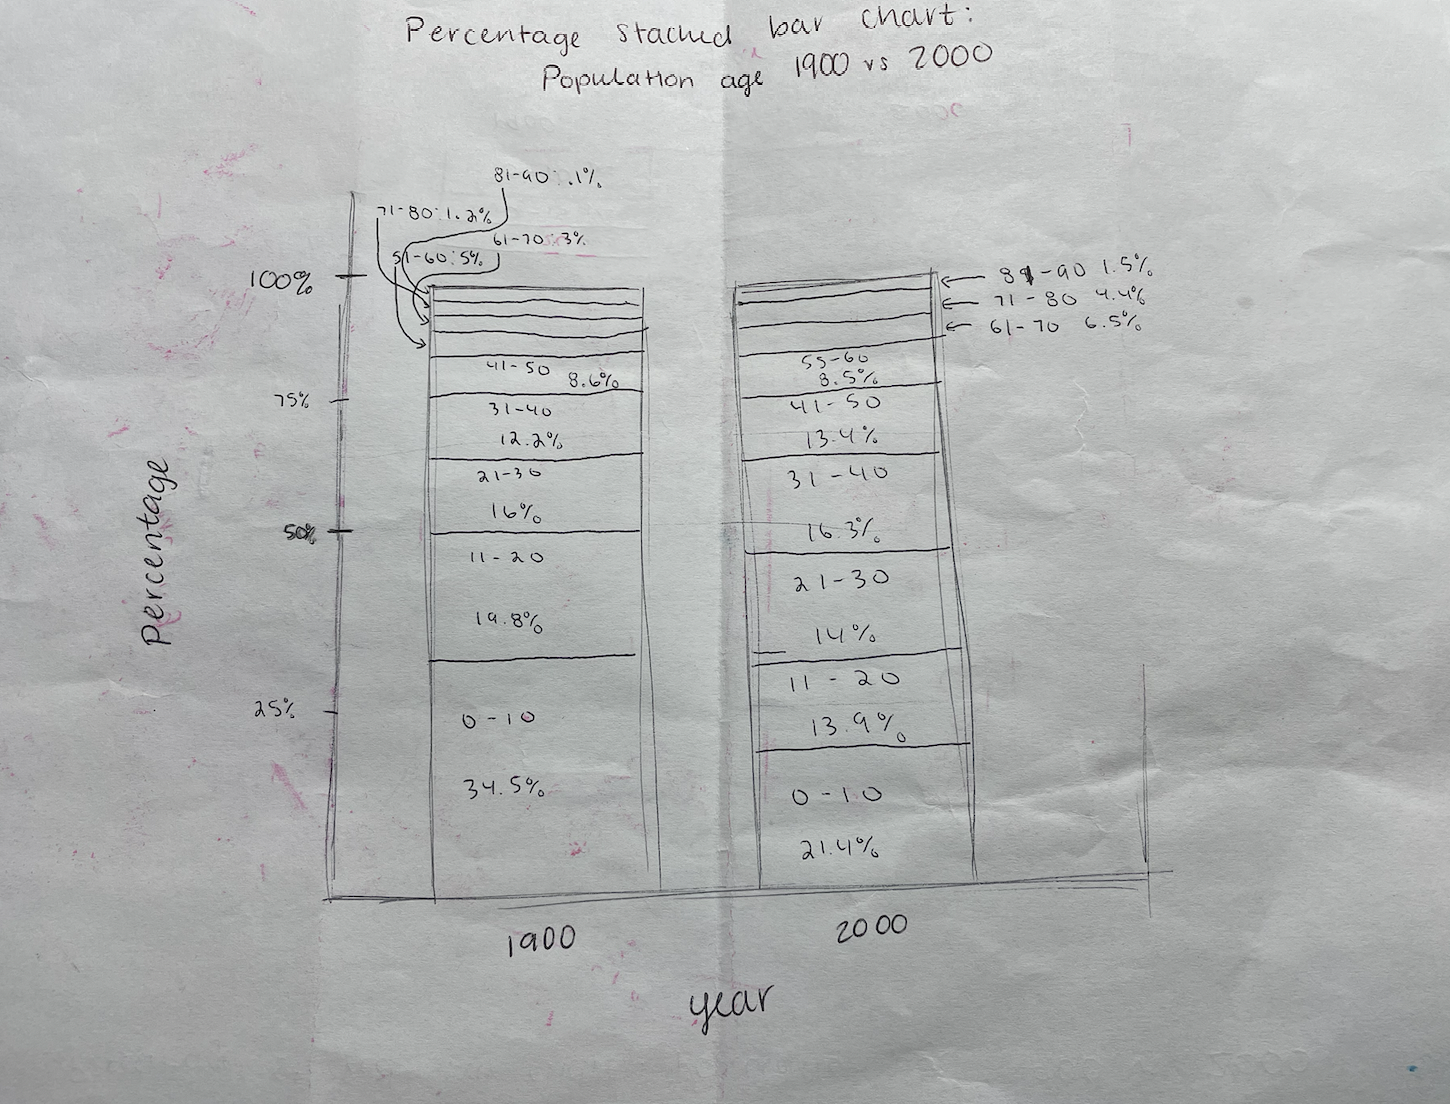 Percentage stacked bar chart:
Population age 1900 vs 2000
81-90: .1%
71-80: 1.2%
61-70: 3%
51-60: 5%
100%
75%
50%
25%
Percentage
41-50 8.6%
31-40
12.2%
21-30
16%
11-20
19.8%
0-10
34.5%
81-90 1.5%
71-80 4.4%
61-70 6.5%
55-60
8.5%
41-50
13.4%
31-40
16.3%
21-30
14%
11-20
13.9%
0-10
21.4%
1900
2000
year